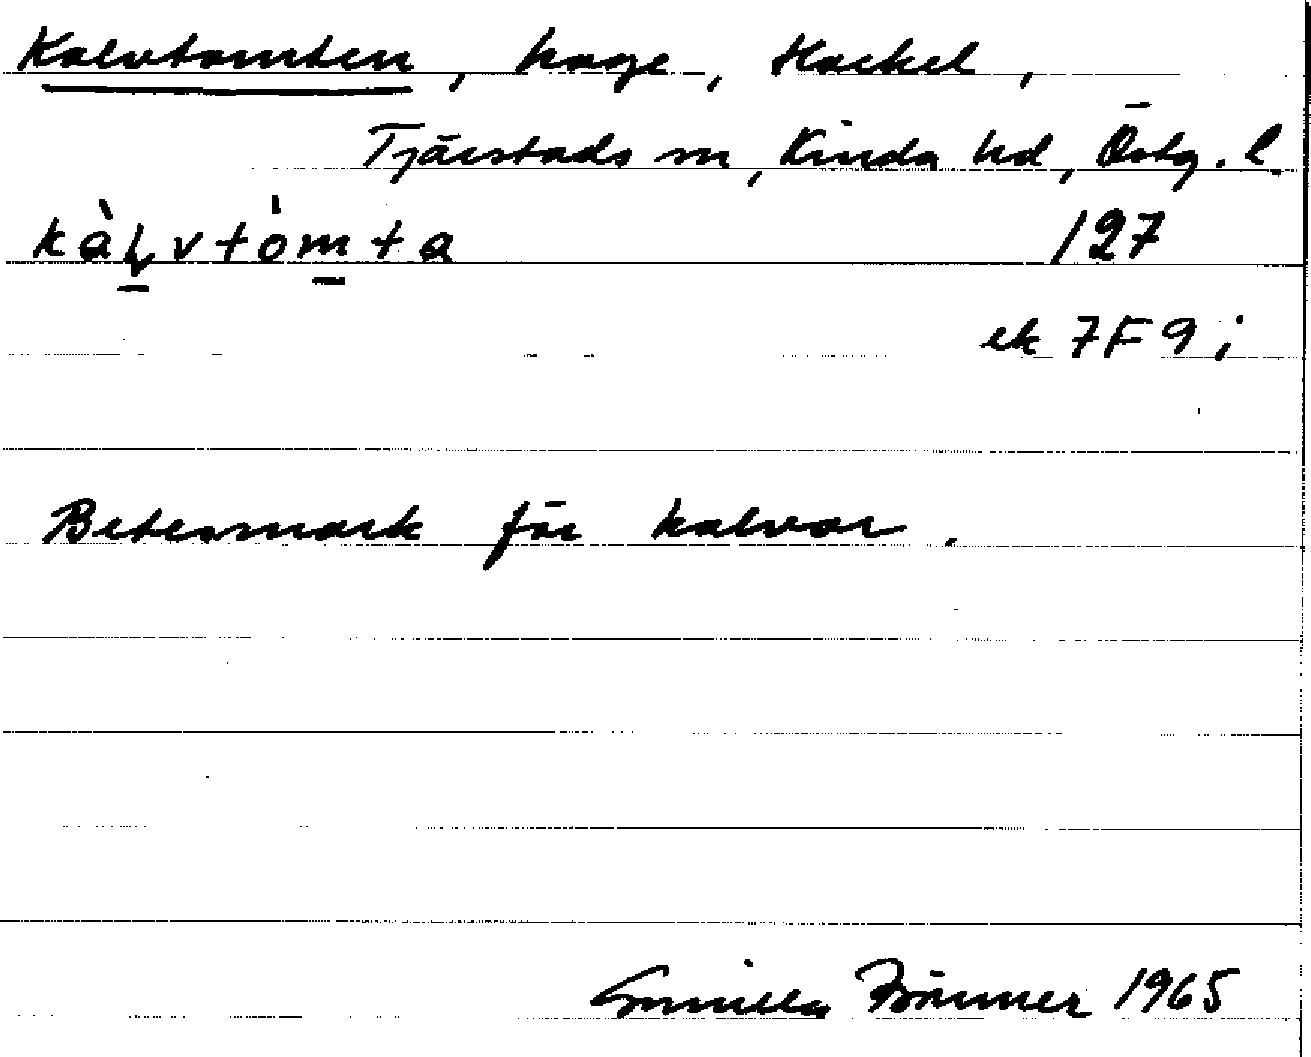 Kalvtomten, hage, Hackel,
Tjärstads sn, Kinda hd, Östg. l.
kàḷvtòm̲ta 127
ek 7F 9 i
Betesmark för kalvar.
Gunilla 1965